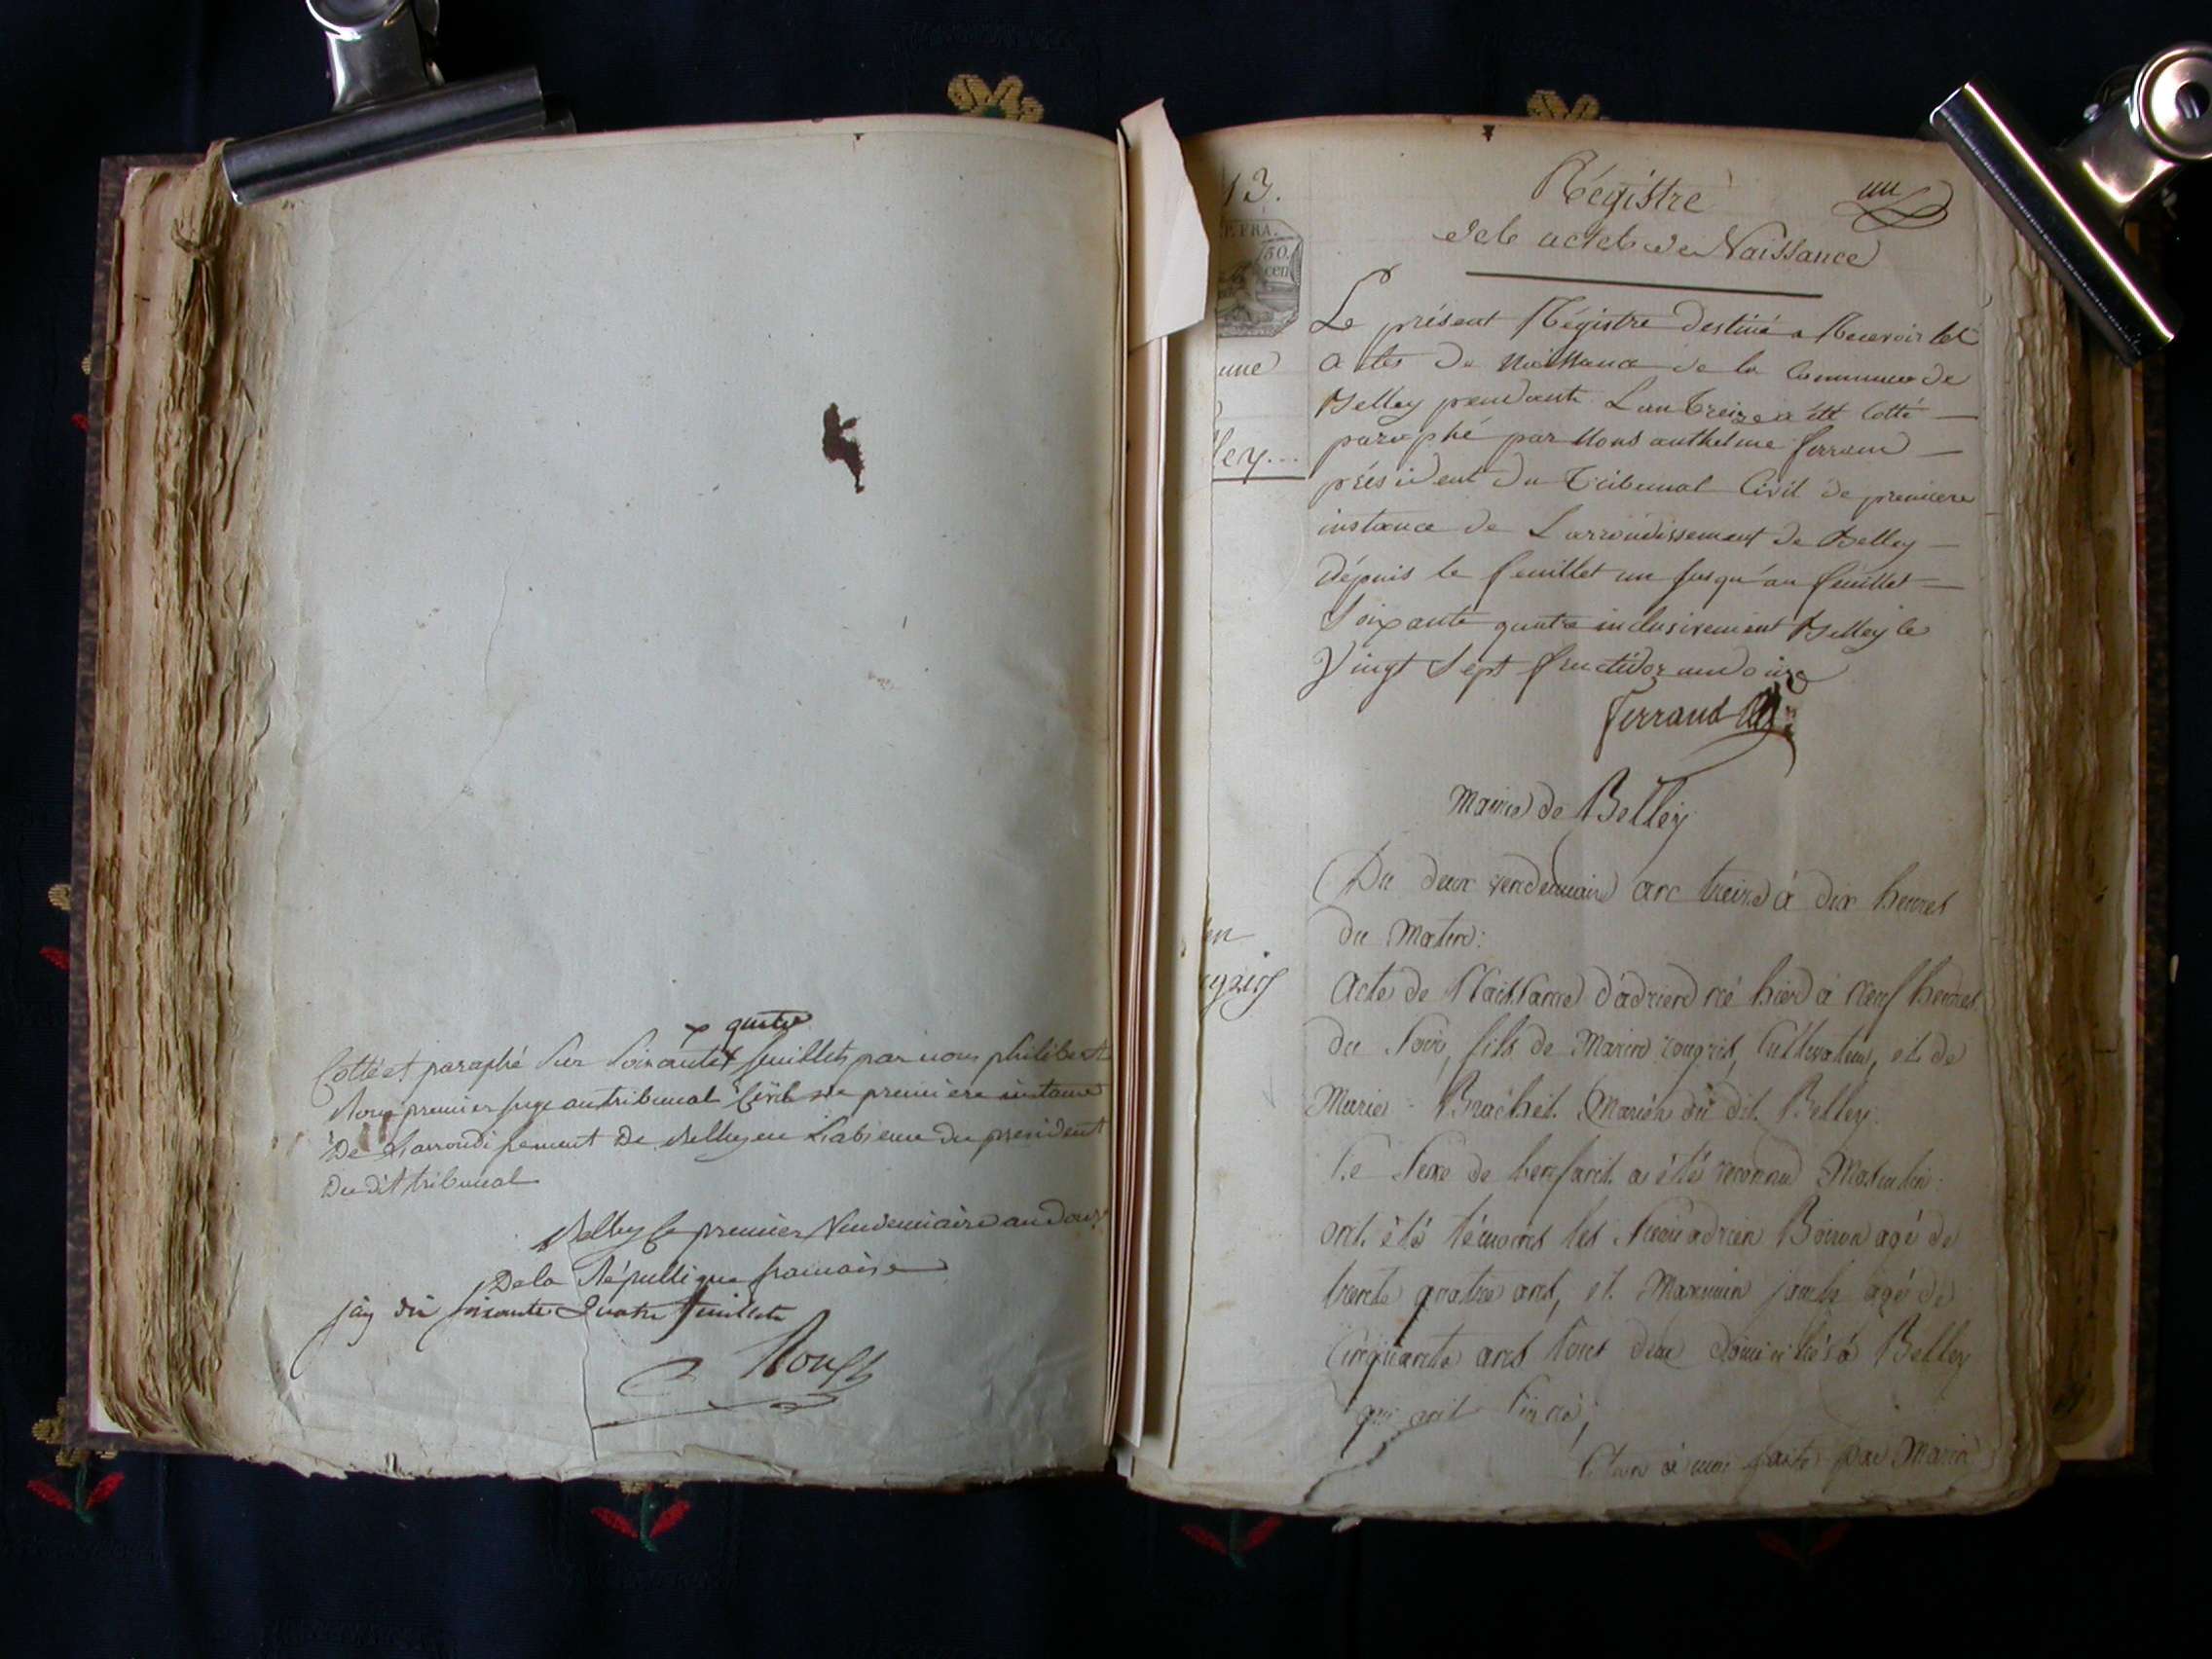 quatre
Cotté et paraphé sur soixante feuillets par nous philibert
premier juge au tribunal Civil de premiere instance
De Larrondissement De Belley en L'absence du president
Du dit tribunal
Belley le premier Vendemiaire an douze
De la République francaise
jay dit soixante Quatre feuillets
13.
P. FRA.
50.
cen
une
ley...
en
Régistre
un
des actes de Naissance
Le présent Régistre destiné a Recevoir les
actes de Naissance de la Commune de
Belley pendant Lan treize a été Cotté
paraphé par Nous anthelme ferrand
président du Tribunal Civil de premiere
instance de Larrondissement de Belley
Dépuis le feuillet un Jusqu'au feuillet
Soixante quatre inclusivement Belley le
Vingt Sept fructidor an douze
ferrand
Mairie de Belley
Du deux vendemiaire an treize à dix heures
du Matin:
Acte de Naissance d'adrien né hier à neuf heures
du Soir, fils de Marin Cultivateur, et de
Marie Brachet Mariés du dit Belley.
Le Sexe de l'enfant a été reconnu Masculin:
ont été témoins les Sieurs adrien agé de
trente quatre ans, et agé de
Cinquante ans tous deux domiciliés à Belley
qui ont Signé;
faite par Marin